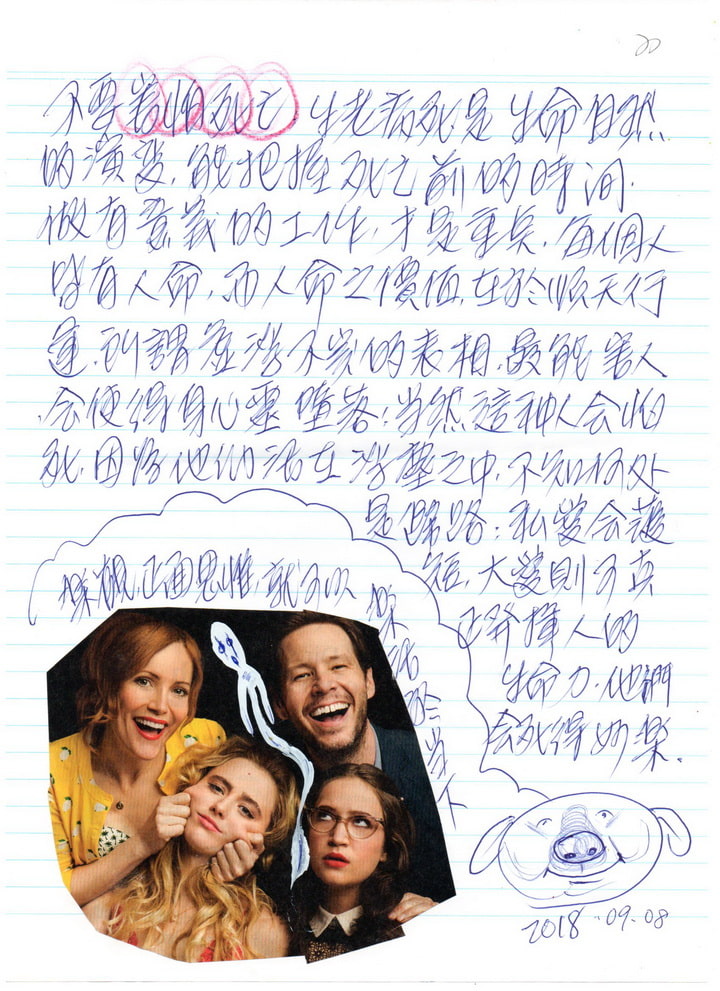 不要害怕死亡, 生老病死是生命自然
的演变, 能把握死亡前的時间,
做有意義的工作, 才是重点, 每個人
皆有人命, 而人命之價值, 在於順天行
運, 所謂 不 的表相, 最能害人
会使得身心靈墮落; 当然這种人会怕
死, 因為他们活在 塵之中, 不知何处
是歸路; 私愛会
短, 大愛則可真
正發揮人的
生命力, 他們
会死得快樂.
樂觀, 正面思惟, 就可以
樂活於当下
2018.09.08